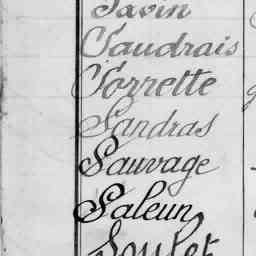 Savin
Saudrais
Sorrette
Sandras
Sauvage
Saleun
Soulet